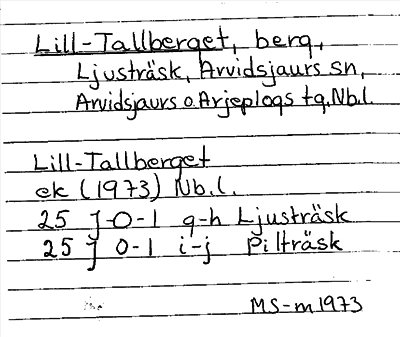 Lill-Tallberget, berg,
Ljusträsk, Arvidsjaurs sn,
Arvidsjaurs o. Arjeplogs tg. Nb.l.
Lill-Tallberget
ek (1973) Nb.l.
25 J 0-1 g-h Ljusträsk
25 J 0-1 i-j Pilträsk
MS-m 1973